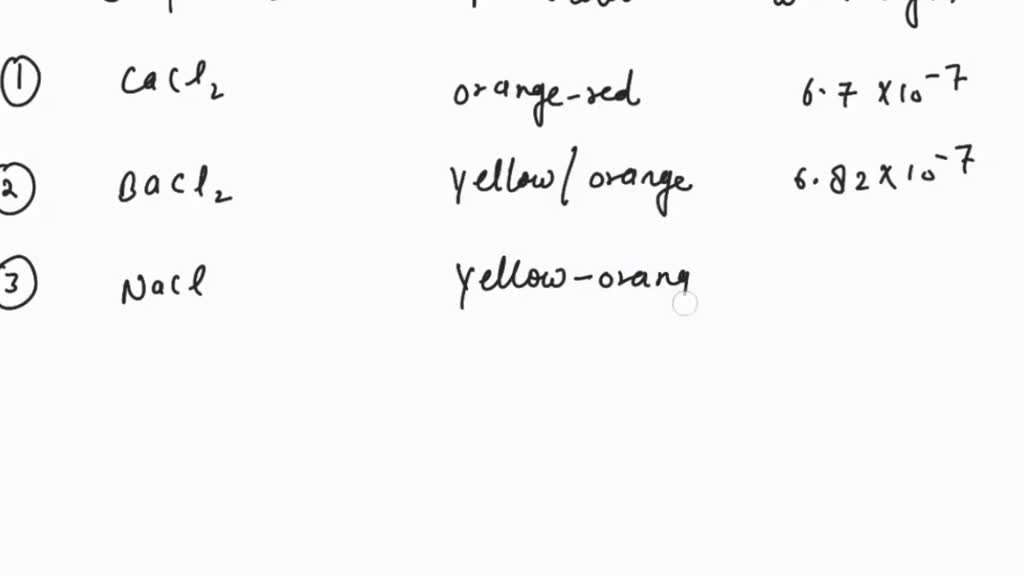 ① CaCl₂ orange-red 6.7 × 10⁻⁷
② BaCl₂ yellow/orange 6.82 × 10⁻⁷
③ NaCl yellow-orang